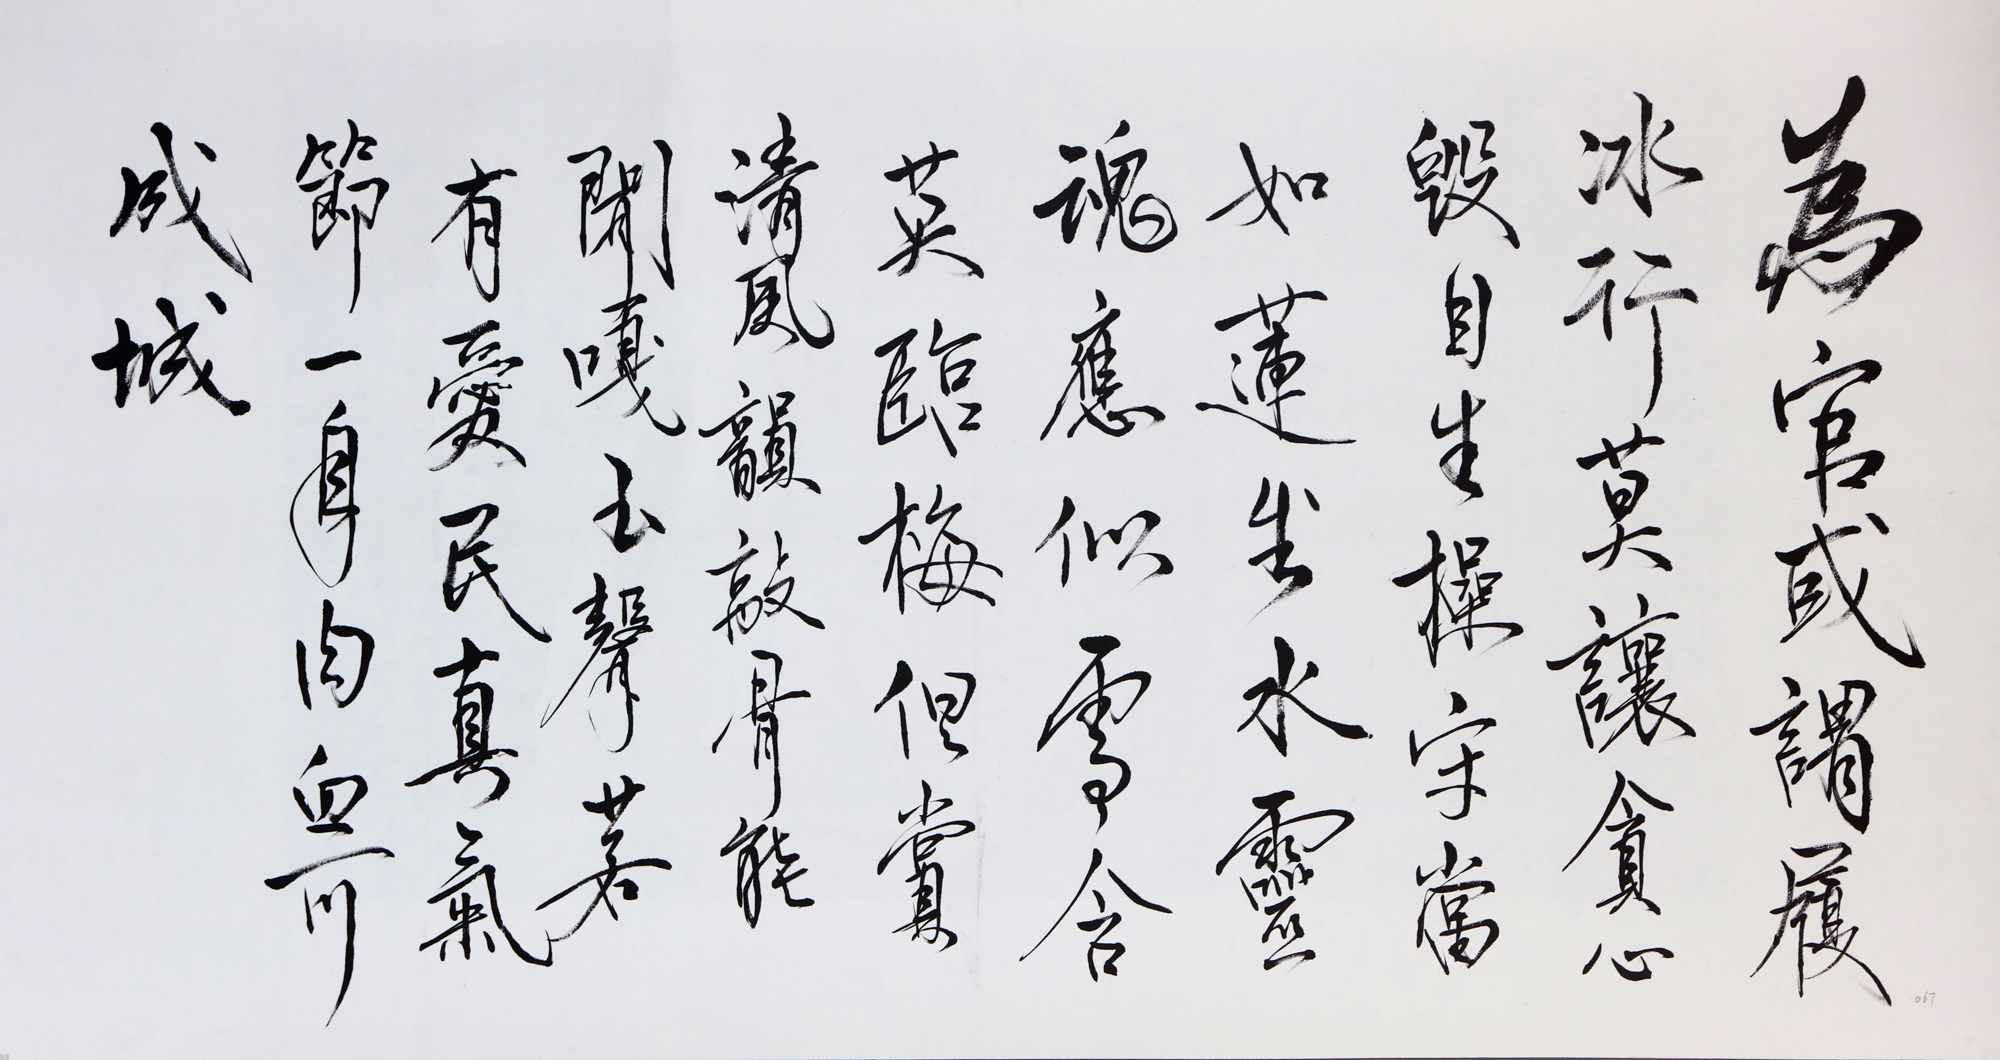 為官咸謂履
冰行莫讓貪心
毀自生操守當
如蓮出水靈
魂應似雪含
英臨梅但賞
清風韻敲骨能
聞嘎玉聲若
有愛民真氣
節一身肉血可
成城
067